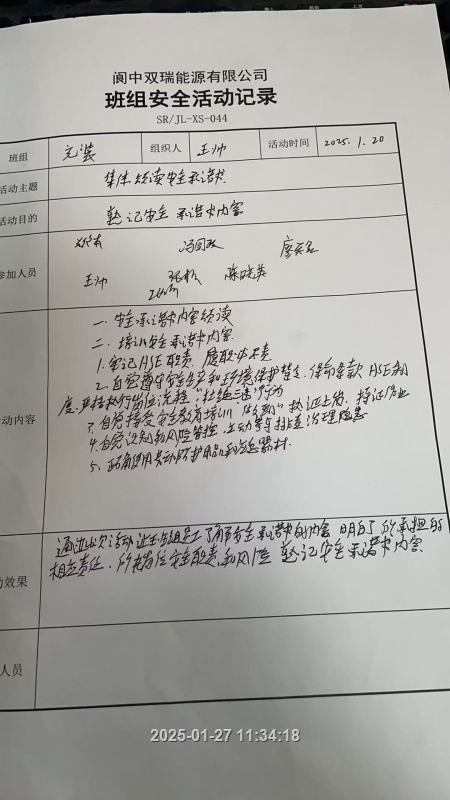 阆中双瑞能源有限公司
班组安全活动记录
SR/JL-XS-044
班组 充装 组织人 王帅 活动时间 2025.1.20
活动主题 集体领读安全承诺书
活动目的 熟记安全承诺书内容
参加人员
王帅 陈晓英
一. 安全承诺书内容领读
二. 培训安全承诺书内容
1. 牢记HSE职责,履职尽责
2. 自觉遵守安全生产和环境保护禁令、保命条款、HSE制
度,严格执行岗位流程"杜绝三违"行为
3. 自觉接受安全教育培训 持证上岗、持证作业
4. 自觉识别和风险管控,主动参与排查治理隐患
5. 正确使用劳动防护用品和应急器材.
动内容
通过此次活动让班组员工了解了安全承诺书的内容 明白了所承担的
相应责任、所在岗位安全职责和风险 熟记安全承诺书内容
效果
人员
2025-01-27 11:34:18